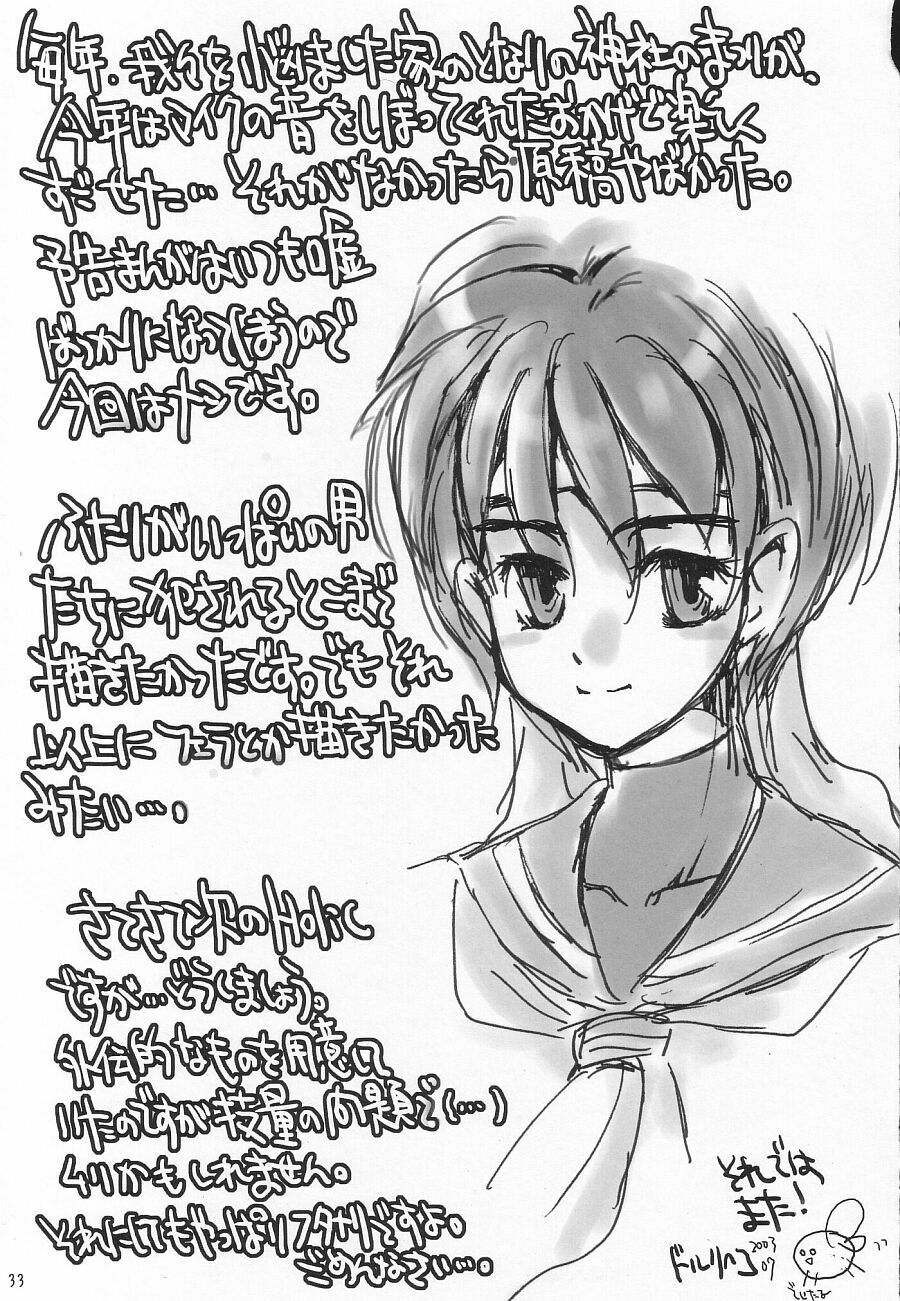 毎年、我々を悩ました家のとなりの神社のまつりが、
今年はマイクの音をしぼってくれたおかげで楽しく
すごせた…それがなかったら原稿やばかった。
予告まんがはいつも嘘
ばっかりになってしまうので
今回はナシです。
ふたりがいっぱいの男
たちに犯されるとこまで
描きたかったです。でもそれ
以上にフェラとか描きたかった
みたい…。
さてさて次のHolic
ですが…どうしましょう。
外伝的なものを用意して
いたのですが技量の問題で(…)
ムリかもしれません。
それにしてもやっぱりフタナリですよ。
ごめんなさい…。
それでは
また!
2003
07
33